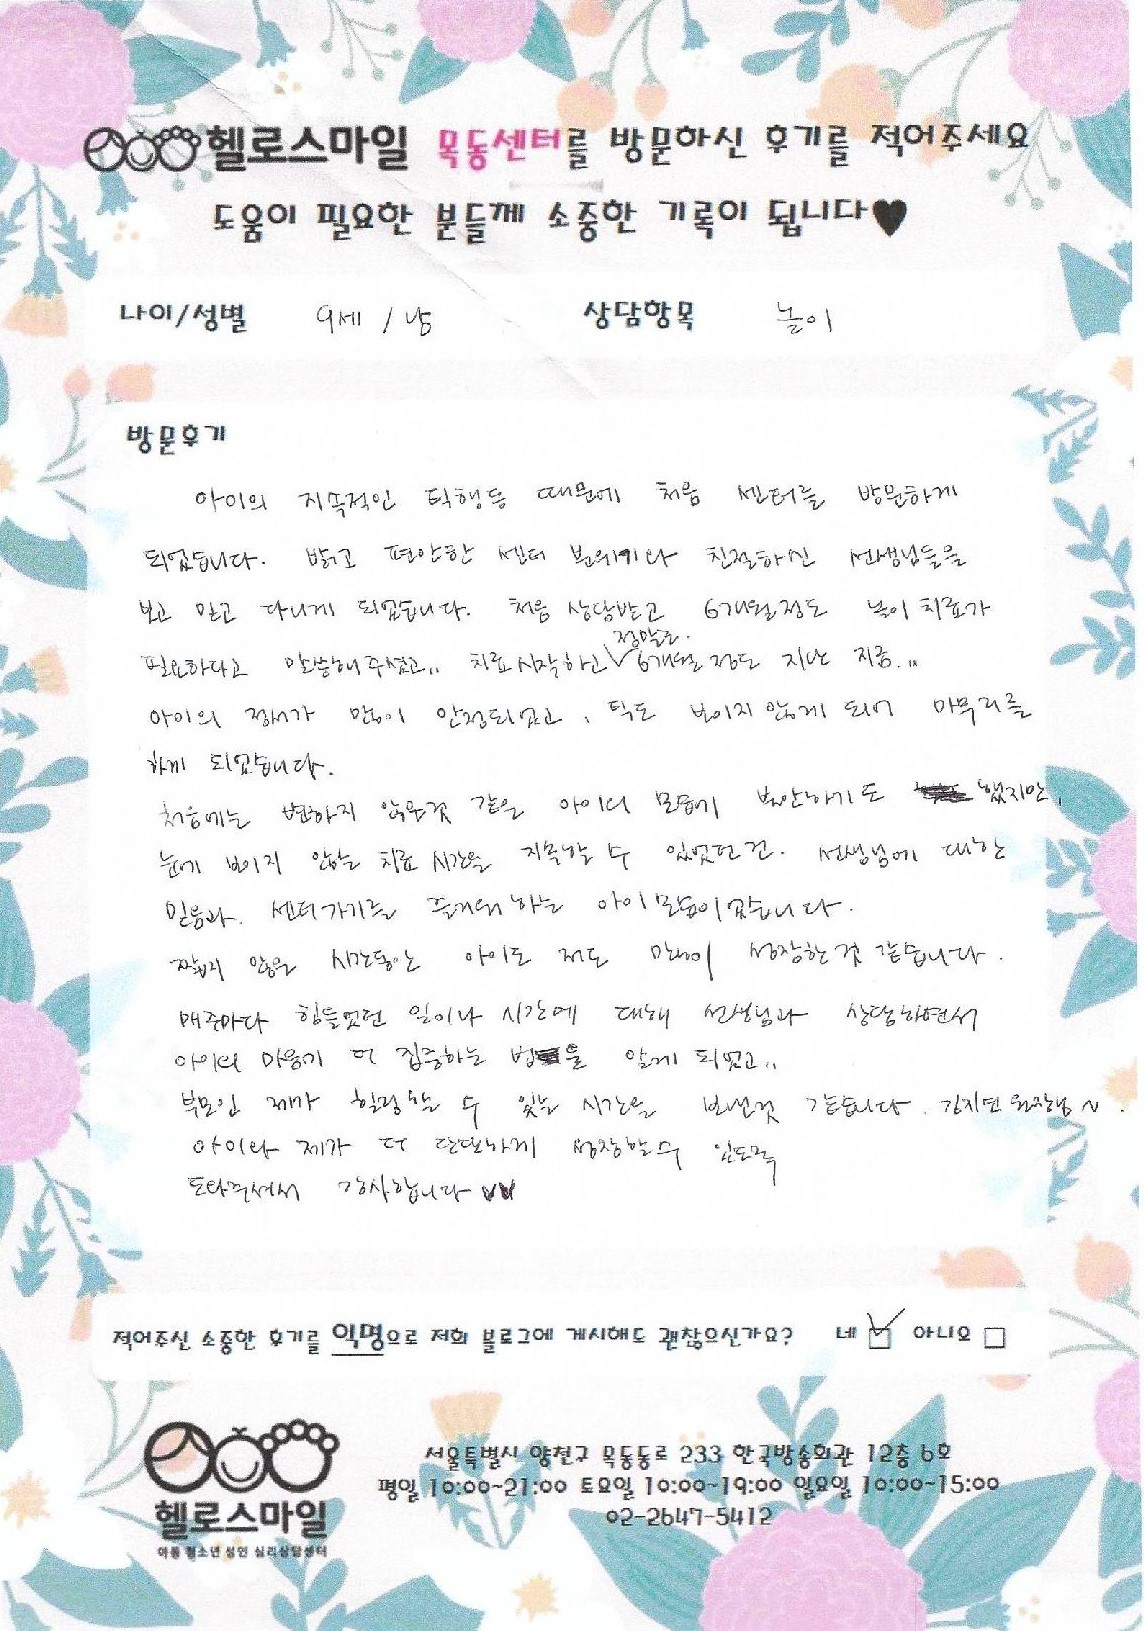 헬로스마일 목동센터를 방문하신 후기를 적어주세요
도움이 필요한 분들께 소중한 기록이 됩니다♥
나이/성별 9세 / 남 상담항목 놀이
방문후기
아이의 지속적인 틱행동 때문에 처음 센터를 방문하게
되었습니다. 밝고 편안한 센터 분위기와 친절하신 선생님들을
보고 믿고 다니게 되었습니다. 처음 상담받고 6개월정도 놀이치료가
정말로.
필요하다고 말씀해주셨고,, 치료시작하고 6개월 정도 지난 지금..,,
아이의 정서가 많이 안정되었고, 틱도 보이지 않게 되어 마무리를
하게 되었습니다.
처음에는 변하지 않은것 같은 아이의 모습에 불안하기도 했지만,
눈에 보이지 않는 치료 시간을 지속할 수 있었던건. 선생님에 대한
믿음과. 센터가기를 즐거워하는 아이모습이었습니다.
짧지 않은 시간동안 아이도 저도 많이 성장한것 같습니다.
매주마다 힘들었던 일이나 시간에 대해 선생님과 상담하면서
아이의 마음에 더 집중하는 법을 알게 되었고,,
부모인 제가 힐링할 수 있는 시간을 보낸것 같습니다. 김지연 원장님~.
아이와 제가 더 단단하게 성장할수 있도록
도와주셔서 감사합니다 ♥♥
적어주신 소중한 후기를 익명으로 저희 블로그에 게시해도 괜찮으신가요? 네 ☑ 아니요 □
헬로스마일
아동 청소년 성인 심리상담센터
서울특별시 양천구 목동동로 233 한국방송회관 12층 6호
평일 10:00~21:00 토요일 10:00~19:00 일요일 10:00~15:00
02-2647-5412